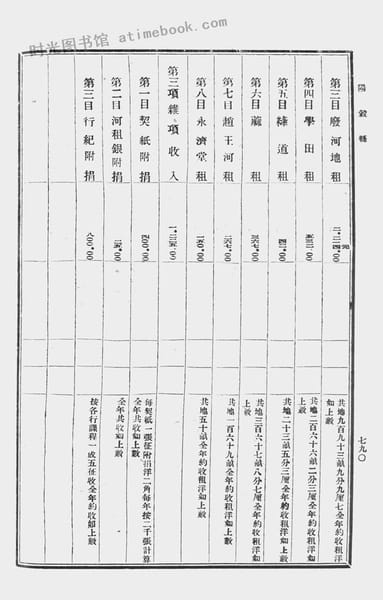 时光图书馆 - atimebook.com
陽穀縣
七九〇
第三目廢河地租
元
共地九百九十三畝九分九厘七全年約收租洋
如上數
第四目學田租 五三二.00
共地二百六十六畝二分三厘全年約收租洋如
上數
第五目綠道租
共地二十三畝五分三厘全年約收租洋如上數
第六目蘆租 三六七.00
共地三百六十七畝八分七厘全年約收租洋如
上數
第七目趙王河租 二六七.00
共地一百六十九畝全年約收租洋如上數
第八目永濟堂租 一五〇.00
共地五十畝全年約收租洋如上數
第三項雜項收入
第一目契紙附捐 四〇〇.00
每契紙一張征附捐洋二角每年按二千張計算
全年共收如上數
第二目河租銀附捐
全年共收如上數
第三目行紀附捐 八〇〇.00
按各行課程一成五征收全年約收如上數